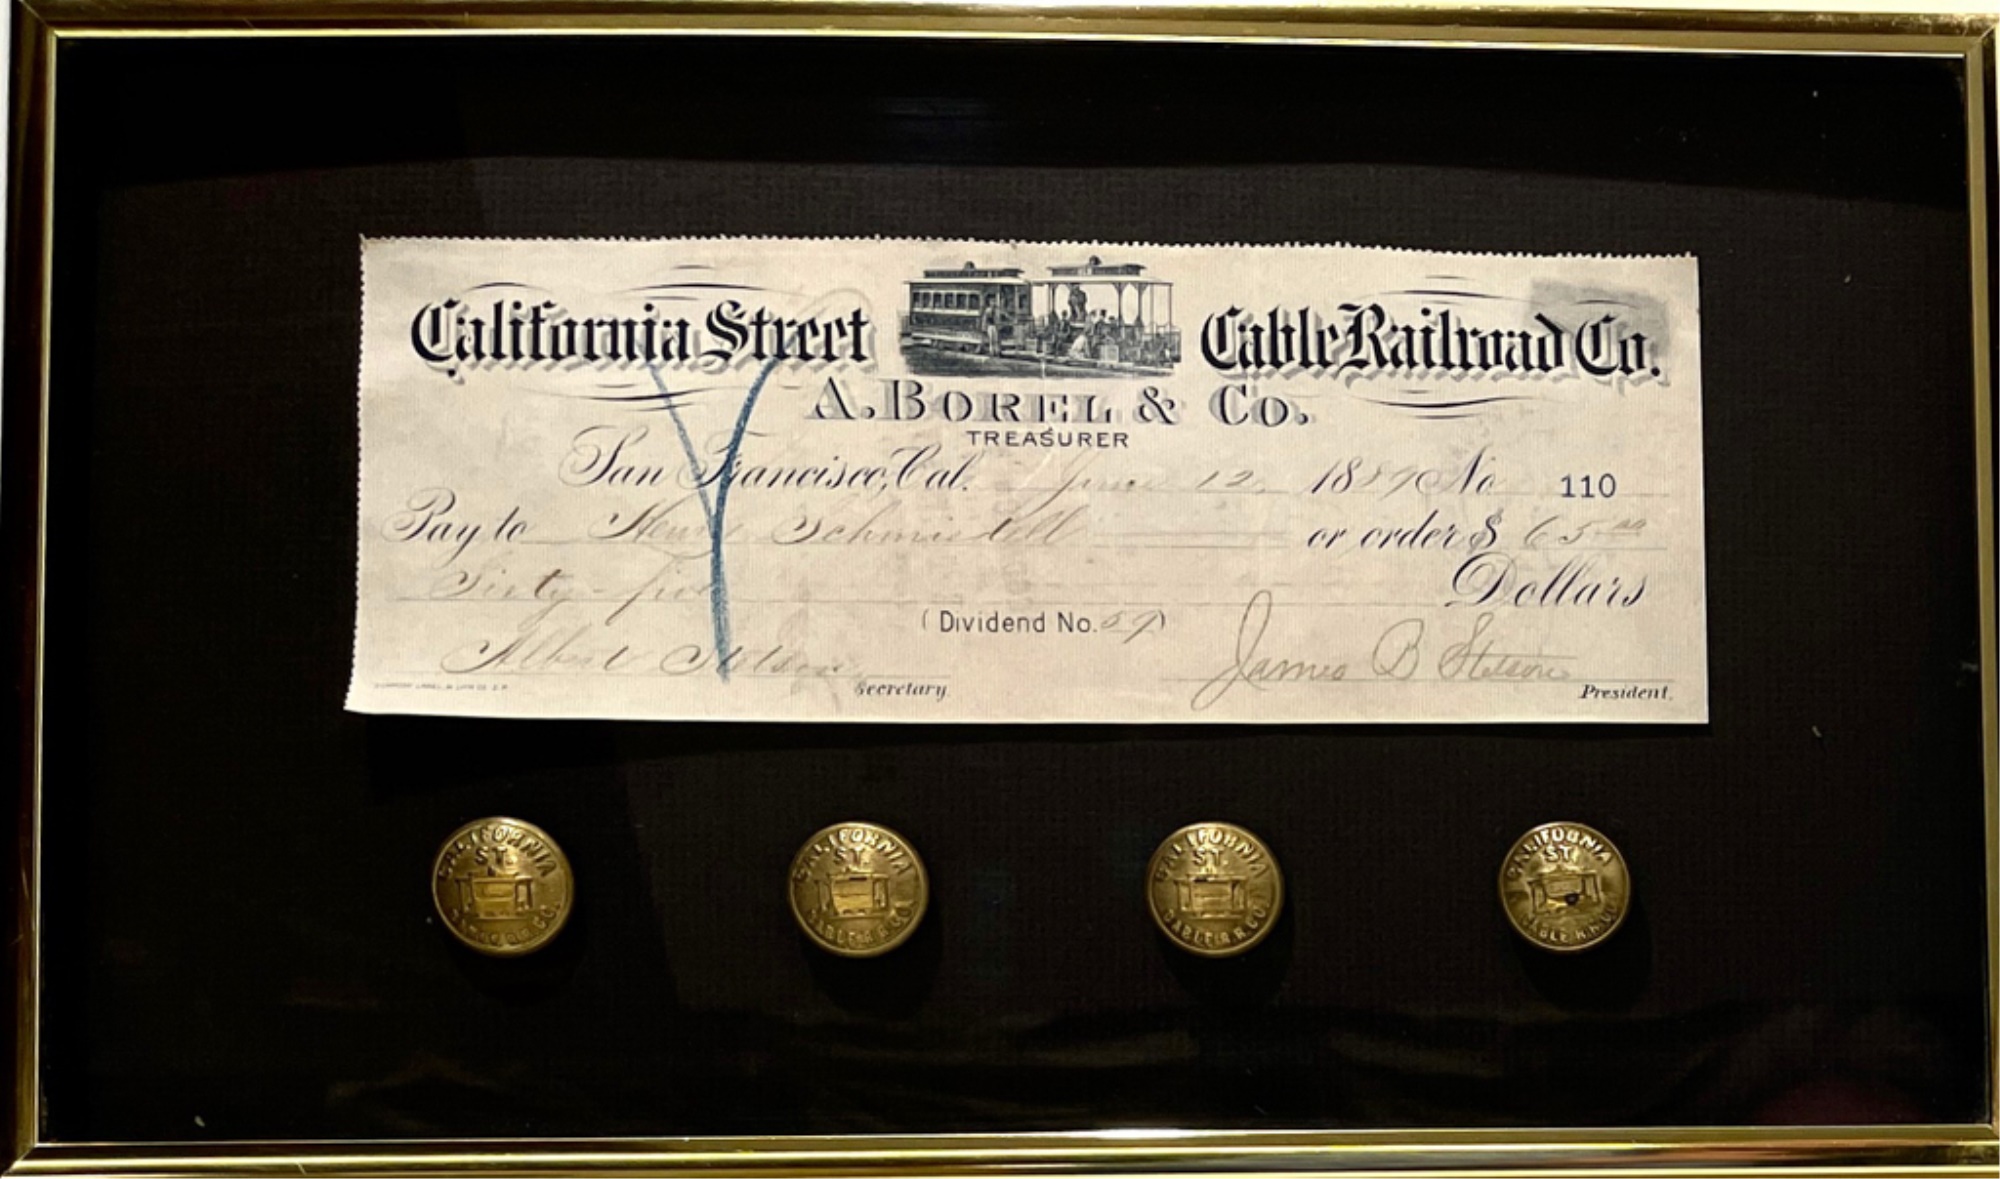 California Street Cable Railroad Co.
A. BOREL & Co.
TREASURER
San Francisco, Cal. June 12, 1889 No 110
Pay to Henry Schmiedell or order $ 65.00
Sixty-five Dollars
(Dividend No. 59)
Albert Stetson James B Stetson
Secretary. President.
CALIFORNIA
ST.
CABLE R.R. CO.
CALIFORNIA
ST.
CABLE R.R. CO.
CALIFORNIA
ST.
CABLE R.R. CO.
CALIFORNIA
ST.
CABLE R.R. CO.